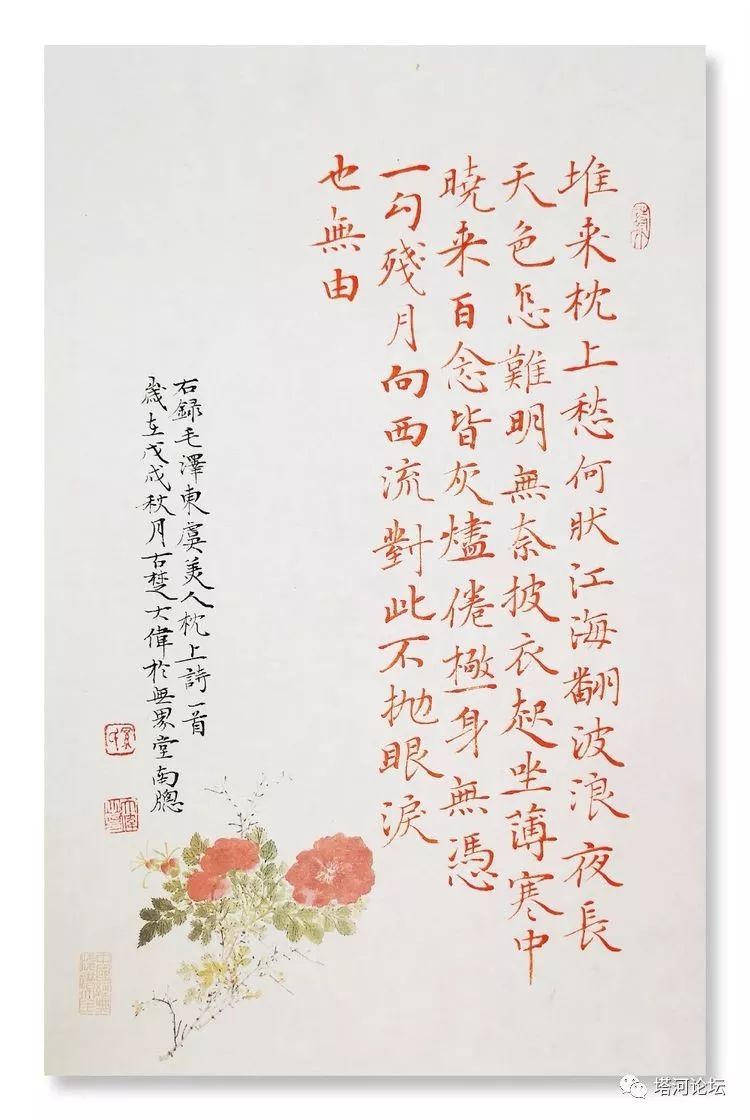 堆来枕上愁何狀江海翻波浪夜長
天色怎難明無奈披衣起坐薄寒中
曉来百念皆灰燼倦極一身無憑
一勾殘月向西流對此不抛眼淚
也無由
右録毛澤東虞美人枕上詩一首
歲在戊戌秋月古楚大偉於無界堂南牕
塔河论坛